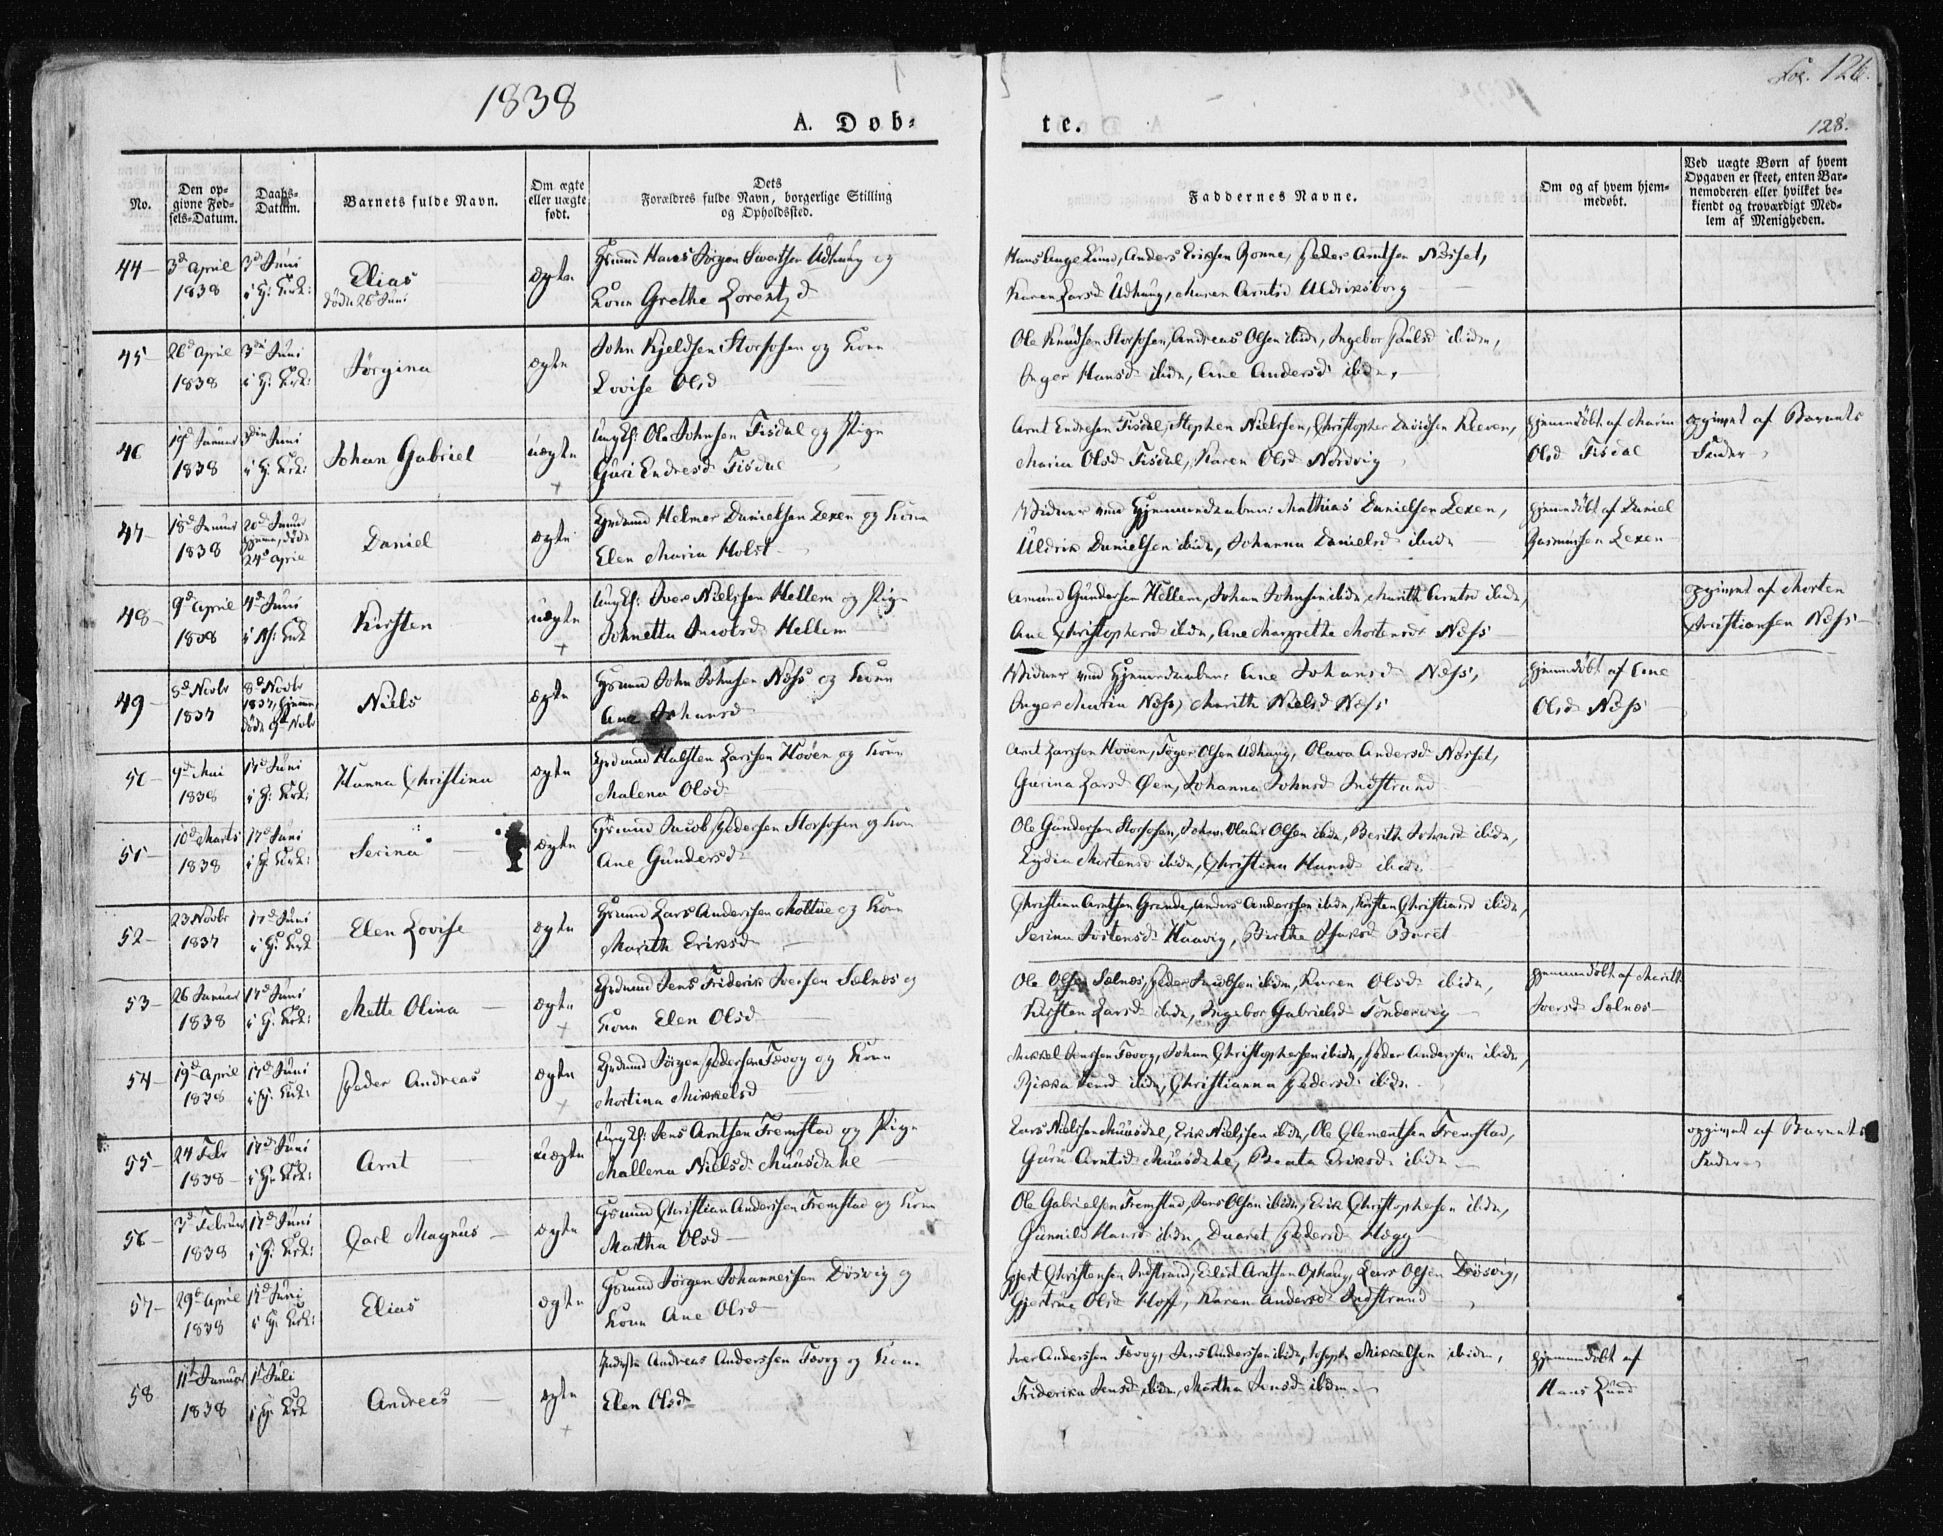 1838
A. Døb-
te.
Fol. 126.
128.
No.
Den op-
givne Fød-
sels-Datum.
Daabs-
Datum.
Barnets fulde Navn.
Om ægte
eller uægte
født.
Dets
Forældres fulde Navn, borgerlige Stilling
og Opholdssted.
Faddernes Navne.
Om og af hvem hjem-
medøbt.
Ved uægte Børn af hvem
Opgaven er skeet, enten Bar-
nemoderen eller hvilket be-
kiendt og troværdigt Med-
lem af Menigheden.
44 3d April
1838
3d Juni
i H: Kirk:
Elias
døde 26 Juni
ægte
Hans Jørgen Sivertsen Udhaug og
Kone Grethe Lorentzd
Hans Lund, Anders Eriksen Rønne, Peder Arntsen Næsset,
Karen Larsd Udhaug, Maren Arntsd Uldriksborg
45 26d April
1838
3die Juni
i H: Kirk:
Jørgina
ægte
John Kjeldsen Storfosen og Kone
Lovise Olsd
Ole Knudsen Storfosen, Andreas Olsen ibidn, Ingebor Paulsd ibidn,
Inger Hansd ibidn, Ane Andersd ibidn,
46 19d Januar
1838
3die Juni
i H: Kirk:
Johan Gabriel
uægte
Ungkl: Ole Johnsen Tisdal og Pige
Guri Endresd Tisdal
Arnt Endresen Tisdal, Stephen Nielssen, Christopher Davidsen Kleven,
Maria Olsd Tisdal, Karen Olsd Nordvig
hjemmedøbt af Maria
Olsd Tisdal
opgivet af Barnets
Fader
47 18d Januar
1838
20d Januar
hjemme, døde
24d April
Daniel
ægte
Helmer Danielsen Lexen og Kone
Elen Maria Holst
Vidner ved Hjemmedaaben: Mathias Danielsen Lexen,
Uldrik Danielsen ibidn, Johanna Danielsd ibidn
hjemmedøbt af Daniel
Rasmussen Lexen
48 9d April
1838
4d Juni
Kirsten
uægte
Ungkl: Iver Nielssen Hellem og Pige
Johnetta Jacobsd Hellem
Amund Gundersen Hellem, Johan Johnsen ibidn, Marith Arntsd ibidn,
Ane Christophersd ibidn, Ane Margrethe Mortensd Næss
opgivet af Morten
Christiansen Næss
49 8d Novbr
1837
8d Novbr
1837, hjemme,
døde 9d Novbr
Niels
ægte
John Johnsen Næss og Kone
Ane Johansd
Vidner ved Hjemmedaaben: Ane Johansd Næss,
Inger Maria Næss, Marith Nielsd Næss
hjemmedøbt af Ane
Olsd Næss
50 9d Mai
1838
17d Juni
i H: Kirk:
Hanna Christina
ægte
Halsten Larssen Hoven og Kone
Malena Olsd
Arnt Larssen Hoven, Jøger Olsen Udhaug, Olava Andersd Næsset,
Gurina Larsd Øen, Johanna Johnsd Indstrand
51 10d Marts
1838
17d Juni
i H: Kirk:
Serina
ægte
Jacob Pedersen Storfosen og Kone
Ane Gundersd
Ole Gundersen Storfosen, Johan Olaus Olsen ibidn, Berith Johnsd ibidn,
Lydia Mortensd ibidn, Christina Hansd ibidn
52 23 Novbr
1837
17d Juni
i H: Kirk
Elen Lovise
ægte
Lars Anderssen Moltue og Kone
Marith Eriksd
Christian Arntsen Grande, Anders Anderssen ibidn, Kirsten Christiansd ibidn,
Serina Jostensd Haavig, Birthe Baret
53 26 Januar
1838
17d Juni
i H: Kirk:
Mette Olina
ægte
Jens Friderik Iversen Sælnæs og
Kone Elen Olsd
Ole Olsen Sælnæs, Peder Jacobsen ibidn, Karen Olsd ibidn,
Kirsten Larsd ibidn, Ingebor Gabrielsd Tondervig
hjemmedøbt af Marith
Iversd Sælnæs
54 19d April
1838
17d Juni
i H: Kirk:
Peder Andreas
ægte
Jørgen Pedersen Fævog og Kone
Martina Mikkelsd
Mikkel Jenssen Fævog, Johan Christophersen ibidn, Peder Anderssen ibidn,
Rikka Jensd ibidn, Christianna Pedersd ibidn
55 24 Febr
1838
17d Juni
i H: Kirk:
Arnt
uægte
Ungkl: Jens Arntsen Fremstad og Pige
Mallena Nielsd Muusdahl
Lars Nielssen Muusdal, Erik Nielssen ibidn, Ole Clementsen Fremstad,
Guru Arntsd Muusdahl, Beata Eriksd ibidn
opgivet af Barnets
Fader
56 3d Februar
1838
17d Juni
i H: Kirk:
Carl Magnus
ægte
Christian Anderssen Fremstad og Kone
Martha Olsd
Ole Gabrielsen Fremstad, Jens Olsen ibidn, Erik Christophersen ibidn,
Gunnild Hansd ibidn, Duaret Pedersd Hegg
57 29d April
1838
17d Juni
i H: Kirk:
Elias
ægte
Jørgen Johannessen Døsvig og
Kone Ane Olsd
Gjert Christensen Indstrand, Eilert Arntsen Ophaug, Lars Olsen Døsvig,
Gjertrue Olsd Hoff, Karen Andersd Indstrand
58 11te Januar
1838
1st Juli
i H: Kirk
Andreas
ægte
Andreas Anderssen Fævog og Kone
Elen Olsd
Iver Anderssen Fævog, Jens Anderssen ibidn, Joseph Mikkelsen ibidn,
Friderika Jensd ibidn, Martha Jensd ibidn
hjemmedøbt af
Hans Lund